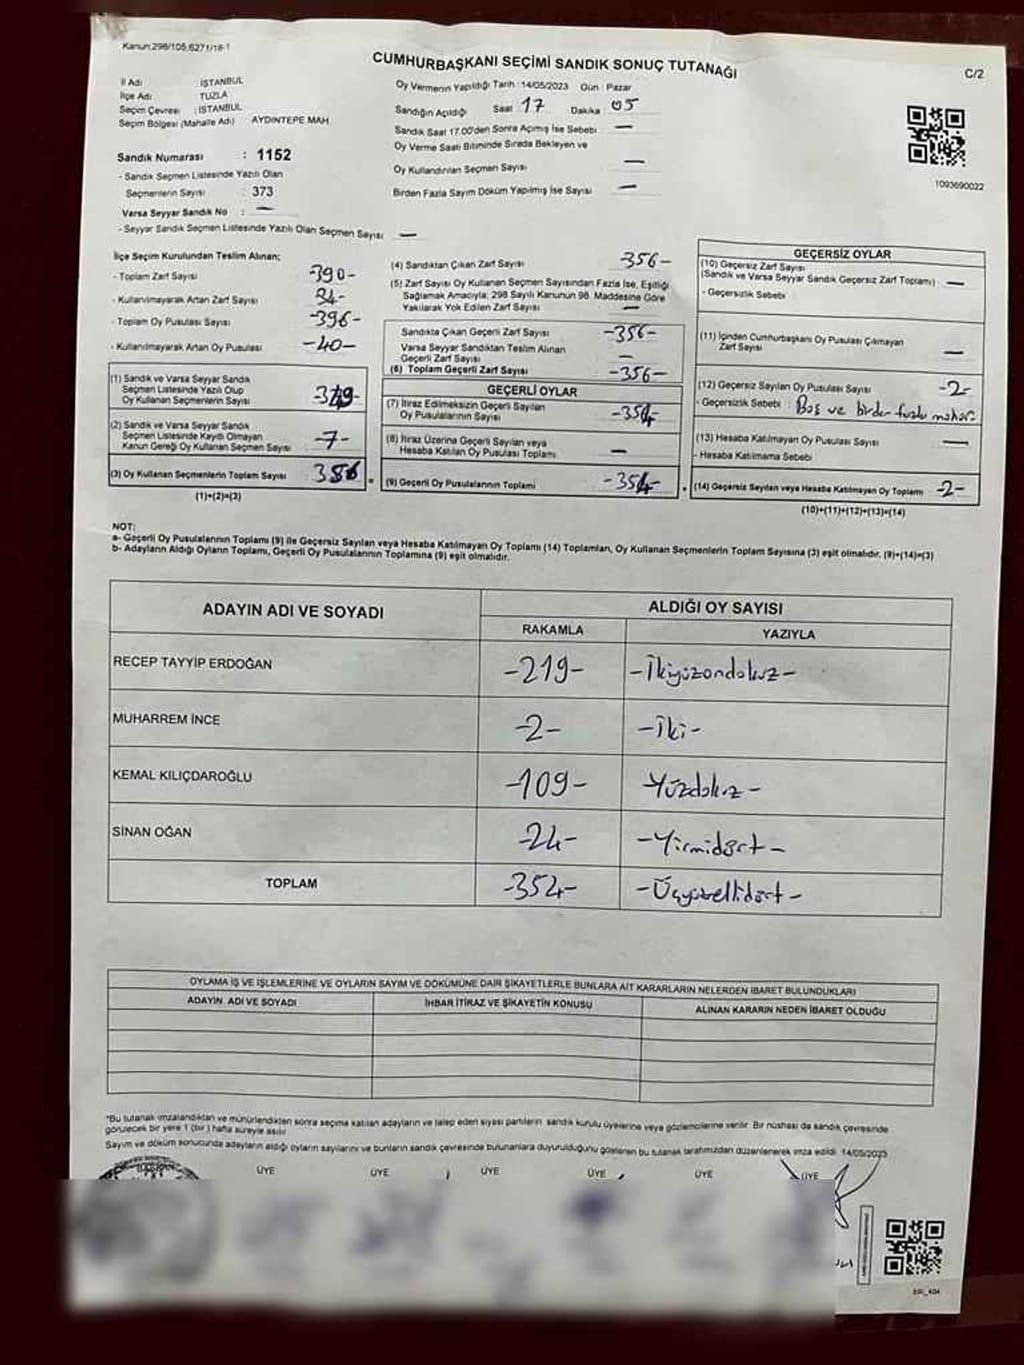 Kanun:298/105;6271/18-1
CUMHURBAŞKANI SEÇİMİ SANDIK SONUÇ TUTANAĞI
C/2
İl Adı : İSTANBUL
İlçe Adı : TUZLA
Seçim Çevresi : İSTANBUL
Seçim Bölgesi (Mahalle Adı) AYDINTEPE MAH.
Sandık Numarası : 1152
- Sandık Seçmen Listesinde Yazılı Olan
Seçmenlerin Sayısı : 373
Varsa Seyyar Sandık No : —
- Seyyar Sandık Seçmen Listesinde Yazılı Olan Seçmen Sayısı —
Oy Vermenin Yapıldığı Tarih :14/05/2023 Gün : Pazar
Sandığın Açıldığı Saat 17 Dakika 05
Sandık Saat 17.00'den Sonra Açımış İse Sebebi —
Oy Verme Saati Bitiminde Sırada Bekleyen ve
Oy Kullandırılan Seçmen Sayısı —
Birden Fazla Sayım Döküm Yapılmış İse Sayısı —
1093690022
İlçe Seçim Kurulundan Teslim Alınan;
- Toplam Zarf Sayısı -390-
- Kullanılmayarak Artan Zarf Sayısı 34-
- Toplam Oy Pusulası Sayısı -396-
- Kullanılmayarak Artan Oy Pusulası -40-
(1) Sandık ve Varsa Seyyar Sandık
Seçmen Listesinde Yazılı Olup
Oy Kullanan Seçmenlerin Sayısı 349-
(2) Sandık ve Varsa Seyyar Sandık
Seçmen Listesinde Kaydı Olmayan
Kanun Gereği Oy Kullanan Seçmen Sayısı -7-
(3) Oy Kullanan Seçmenlerin Toplam Sayısı 356
(1)+(2)=(3)
(4) Sandıktan Çıkan Zarf Sayısı -356-
(5) Zarf Sayısı Oy Kullanan Seçmen Sayısından Fazla İse, Eşitliği
Sağlamak Amacıyla; 298 Sayılı Kanunun 98. Maddesine Göre
Yakılarak Yok Edilen Zarf Sayısı —
Sandıkta Çıkan Geçerli Zarf Sayısı -356-
Varsa Seyyar Sandıktan Teslim Alınan
Geçerli Zarf Sayısı —
(6) Toplam Geçerli Zarf Sayısı -356-
GEÇERLİ OYLAR
(7) İtiraz Edilmeksizin Geçerli Sayılan
Oy Pusulalarının Sayısı -354-
(8) İtiraz Üzerine Geçerli Sayılan veya
Hesaba Katılan Oy Pusulası Toplamı —
(9) Geçerli Oy Pusulalarının Toplamı -354-
GEÇERSİZ OYLAR
(10) Geçersiz Zarf Sayısı
(Sandık ve Varsa Seyyar Sandık Geçersiz Zarf Toplamı) —
- Geçersizlik Sebebi :
(11) İçinden Cumhurbaşkanı Oy Pusulası Çıkmayan
Zarf Sayısı —
(12) Geçersiz Sayılan Oy Pusulası Sayısı -2-
- Geçersizlik Sebebi : Boş ve birden fazla mühür
(13) Hesaba Katılmayan Oy Pusulası Sayısı —
- Hesaba Katılmama Sebebi
(14) Geçersiz Sayılan veya Hesaba Katılmayan Oy Toplamı -2-
(10)+(11)+(12)+(13)=(14)
NOT:
a- Geçerli Oy Pusulalarının Toplamı (9) ile Geçersiz Sayılan veya Hesaba Katılmayan Oy Toplamı (14) Toplamları, Oy Kullanan Seçmenlerin Toplam Sayısına (3) eşit olmalıdır. (9)+(14)=(3)
b- Adayların Aldığı Oyların Toplamı, Geçerli Oy Pusulalarının Toplamına (9) eşit olmalıdır.
ADAYIN ADI VE SOYADI
ALDIĞI OY SAYISI
RAKAMLA YAZIYLA
RECEP TAYYİP ERDOĞAN -219- -İkiyüzondokuz-
MUHARREM İNCE -2- -İki-
KEMAL KILIÇDAROĞLU -109- -Yüzdokuz-
SİNAN OĞAN -24- -Yirmidört-
TOPLAM -354- -Üçyüzellidört-
OYLAMA İŞ VE İŞLEMLERİNE VE OYLARIN SAYIM VE DÖKÜMÜNE DAİR ŞİKAYETLERLE BUNLARA AİT KARARLARIN NELERDEN İBARET BULUNDUKLARI
ADAYIN ADI VE SOYADI İHBAR İTİRAZ VE ŞİKAYETİN KONUSU ALINAN KARARIN NEDEN İBARET OLDUĞU
*Bu tutanak imzalandıktan ve mühürlendikten sonra seçime katılan adayların ve talep eden siyasi partilerin sandık kurulu üyelerine veya gözlemcilerine verilir. Bir nüshası da sandık çevresinde
görülecek bir yere 1 (bir) hafta süreyle asılır.
Sayım ve döküm sonucunda adayların aldığı oyların sayılarını ve bunların sandık çevresinde bulunanlara duyurulduğunu gösteren bu tutanak tarafımızdan düzenlenerek imza edildi. 14/05/2023
BAŞKAN ÜYE ÜYE ÜYE ÜYE ÜYE ÜYE